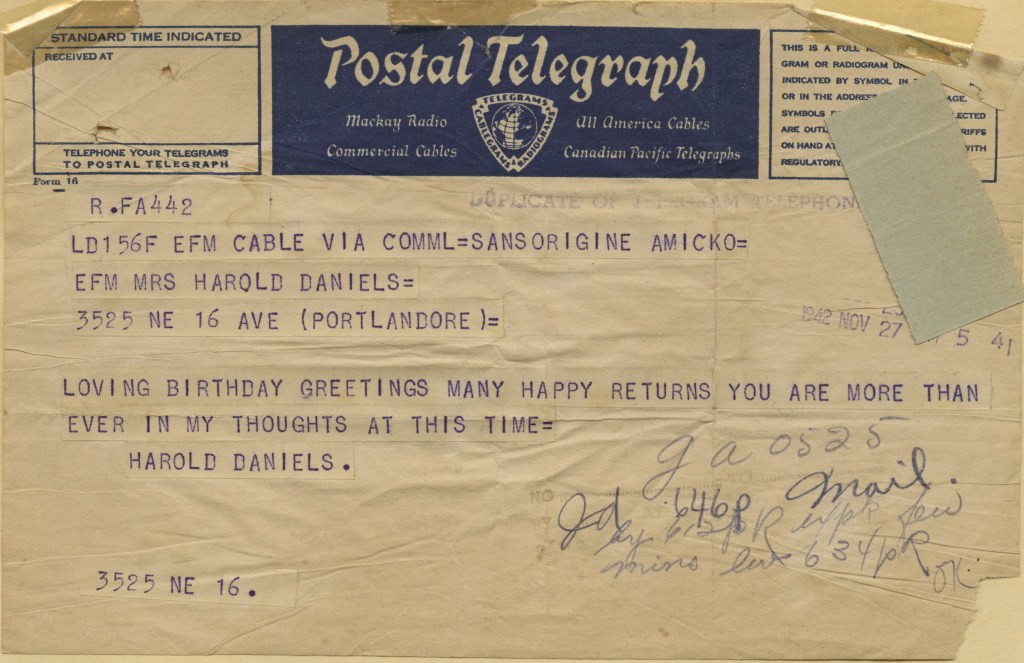 STANDARD TIME INDICATED
RECEIVED AT
TELEPHONE YOUR TELEGRAMS
TO POSTAL TELEGRAPH
Form 16
Postal Telegraph
Mackay Radio
All America Cables
Commercial Cables
Canadian Pacific Telegraphs
TELEGRAMS
CABLEGRAMS
RADIOGRAMS
THIS IS A FULL
GRAM OR RADIOGRAM
INDICATED BY SYMBOL IN
OR IN THE ADDRESS
SYMBOLS
ARE
ON HAND AT
WITH
REGULATORY
R.FA442
DUPLICATE OF TELEGRAM TELEPHON
LD156F EFM CABLE VIA COMML=SANSORIGINE AMICKO=
EFM MRS HAROLD DANIELS=
3525 NE 16 AVE (PORTLANDORE)=
1942 NOV 27 5 41
LOVING BIRTHDAY GREETINGS MANY HAPPY RETURNS YOU ARE MORE THAN
EVER IN MY THOUGHTS AT THIS TIME=
HAROLD DANIELS.
ga 0525
646p Mail.
few
mins 634p R
OK
3525 NE 16.